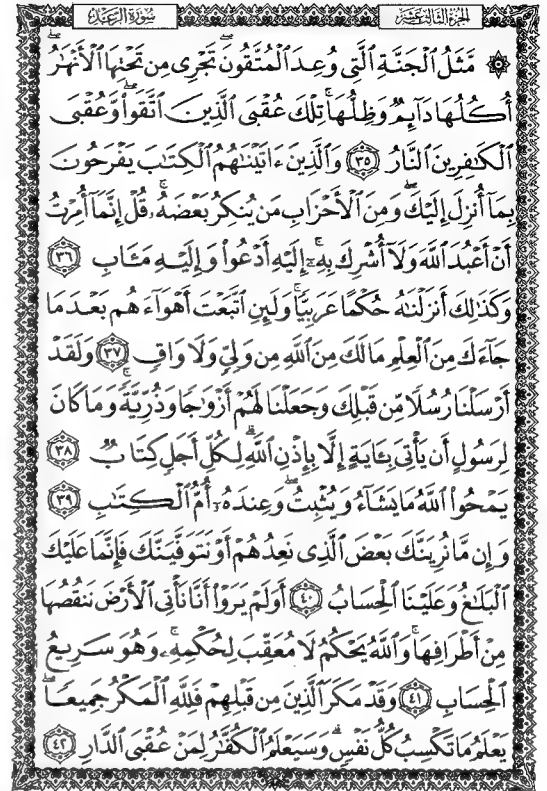 سُورَةُ الرَّعۡدِ
الجُزءُ الثَّالِثَ عَشَرَ
۞ مَّثَلُ ٱلۡجَنَّةِ ٱلَّتِي وُعِدَ ٱلۡمُتَّقُونَۖ تَجۡرِي مِن تَحۡتِهَا ٱلۡأَنۡهَٰرُۖ
أُكُلُهَا دَآئِمٞ وَظِلُّهَاۚ تِلۡكَ عُقۡبَى ٱلَّذِينَ ٱتَّقَواْۚ وَّعُقۡبَى
ٱلۡكَٰفِرِينَ ٱلنَّارُ ٣٥ وَٱلَّذِينَ ءَاتَيۡنَٰهُمُ ٱلۡكِتَٰبَ يَفۡرَحُونَ
بِمَآ أُنزِلَ إِلَيۡكَۖ وَمِنَ ٱلۡأَحۡزَابِ مَن يُنكِرُ بَعۡضَهُۥۚ قُلۡ إِنَّمَآ أُمِرۡتُ
أَنۡ أَعۡبُدَ ٱللَّهَ وَلَآ أُشۡرِكَ بِهِۦٓۚ إِلَيۡهِ أَدۡعُواْ وَإِلَيۡهِ مَـَٔابِ ٣٦
وَكَذَٰلِكَ أَنزَلۡنَٰهُ حُكۡمًا عَرَبِيّٗاۚ وَلَئِنِ ٱتَّبَعۡتَ أَهۡوَآءَهُم بَعۡدَ مَا
جَآءَكَ مِنَ ٱلۡعِلۡمِ مَا لَكَ مِنَ ٱللَّهِ مِن وَلِيّٖ وَلَا وَاقٖ ٣٧ وَلَقَدۡ
أَرۡسَلۡنَا رُسُلٗا مِّن قَبۡلِكَ وَجَعَلۡنَا لَهُمۡ أَزۡوَٰجٗا وَذُرِّيَّةٗۚ وَمَا كَانَ
لِرَسُولٍ أَن يَأۡتِيَ بِـَٔايَةٍ إِلَّا بِإِذۡنِ ٱللَّهِۗ لِكُلِّ أَجَلٖ كِتَابٞ ٣٨
يَمۡحُواْ ٱللَّهُ مَا يَشَآءُ وَيُثۡبِتُۖ وَعِندَهُۥٓ أُمُّ ٱلۡكِتَٰبِ ٣٩
وَإِن مَّا نُرِيَنَّكَ بَعۡضَ ٱلَّذِي نَعِدُهُمۡ أَوۡ نَتَوَفَّيَنَّكَ فَإِنَّمَا عَلَيۡكَ
ٱلۡبَلَٰغُ وَعَلَيۡنَا ٱلۡحِسَابُ ٤٠ أَوَلَمۡ يَرَوۡاْ أَنَّا نَأۡتِي ٱلۡأَرۡضَ نَنقُصُهَا
مِنۡ أَطۡرَافِهَاۚ وَٱللَّهُ يَحۡكُمُ لَا مُعَقِّبَ لِحُكۡمِهِۦۚ وَهُوَ سَرِيعُ
ٱلۡحِسَابِ ٤١ وَقَدۡ مَكَرَ ٱلَّذِينَ مِن قَبۡلِهِمۡ فَلِلَّهِ ٱلۡمَكۡرُ جَمِيعٗاۖ
يَعۡلَمُ مَا تَكۡسِبُ كُلُّ نَفۡسٖۗ وَسَيَعۡلَمُ ٱلۡكُفَّٰرُ لِمَنۡ عُقۡبَى ٱلدَّارِ ٤٢